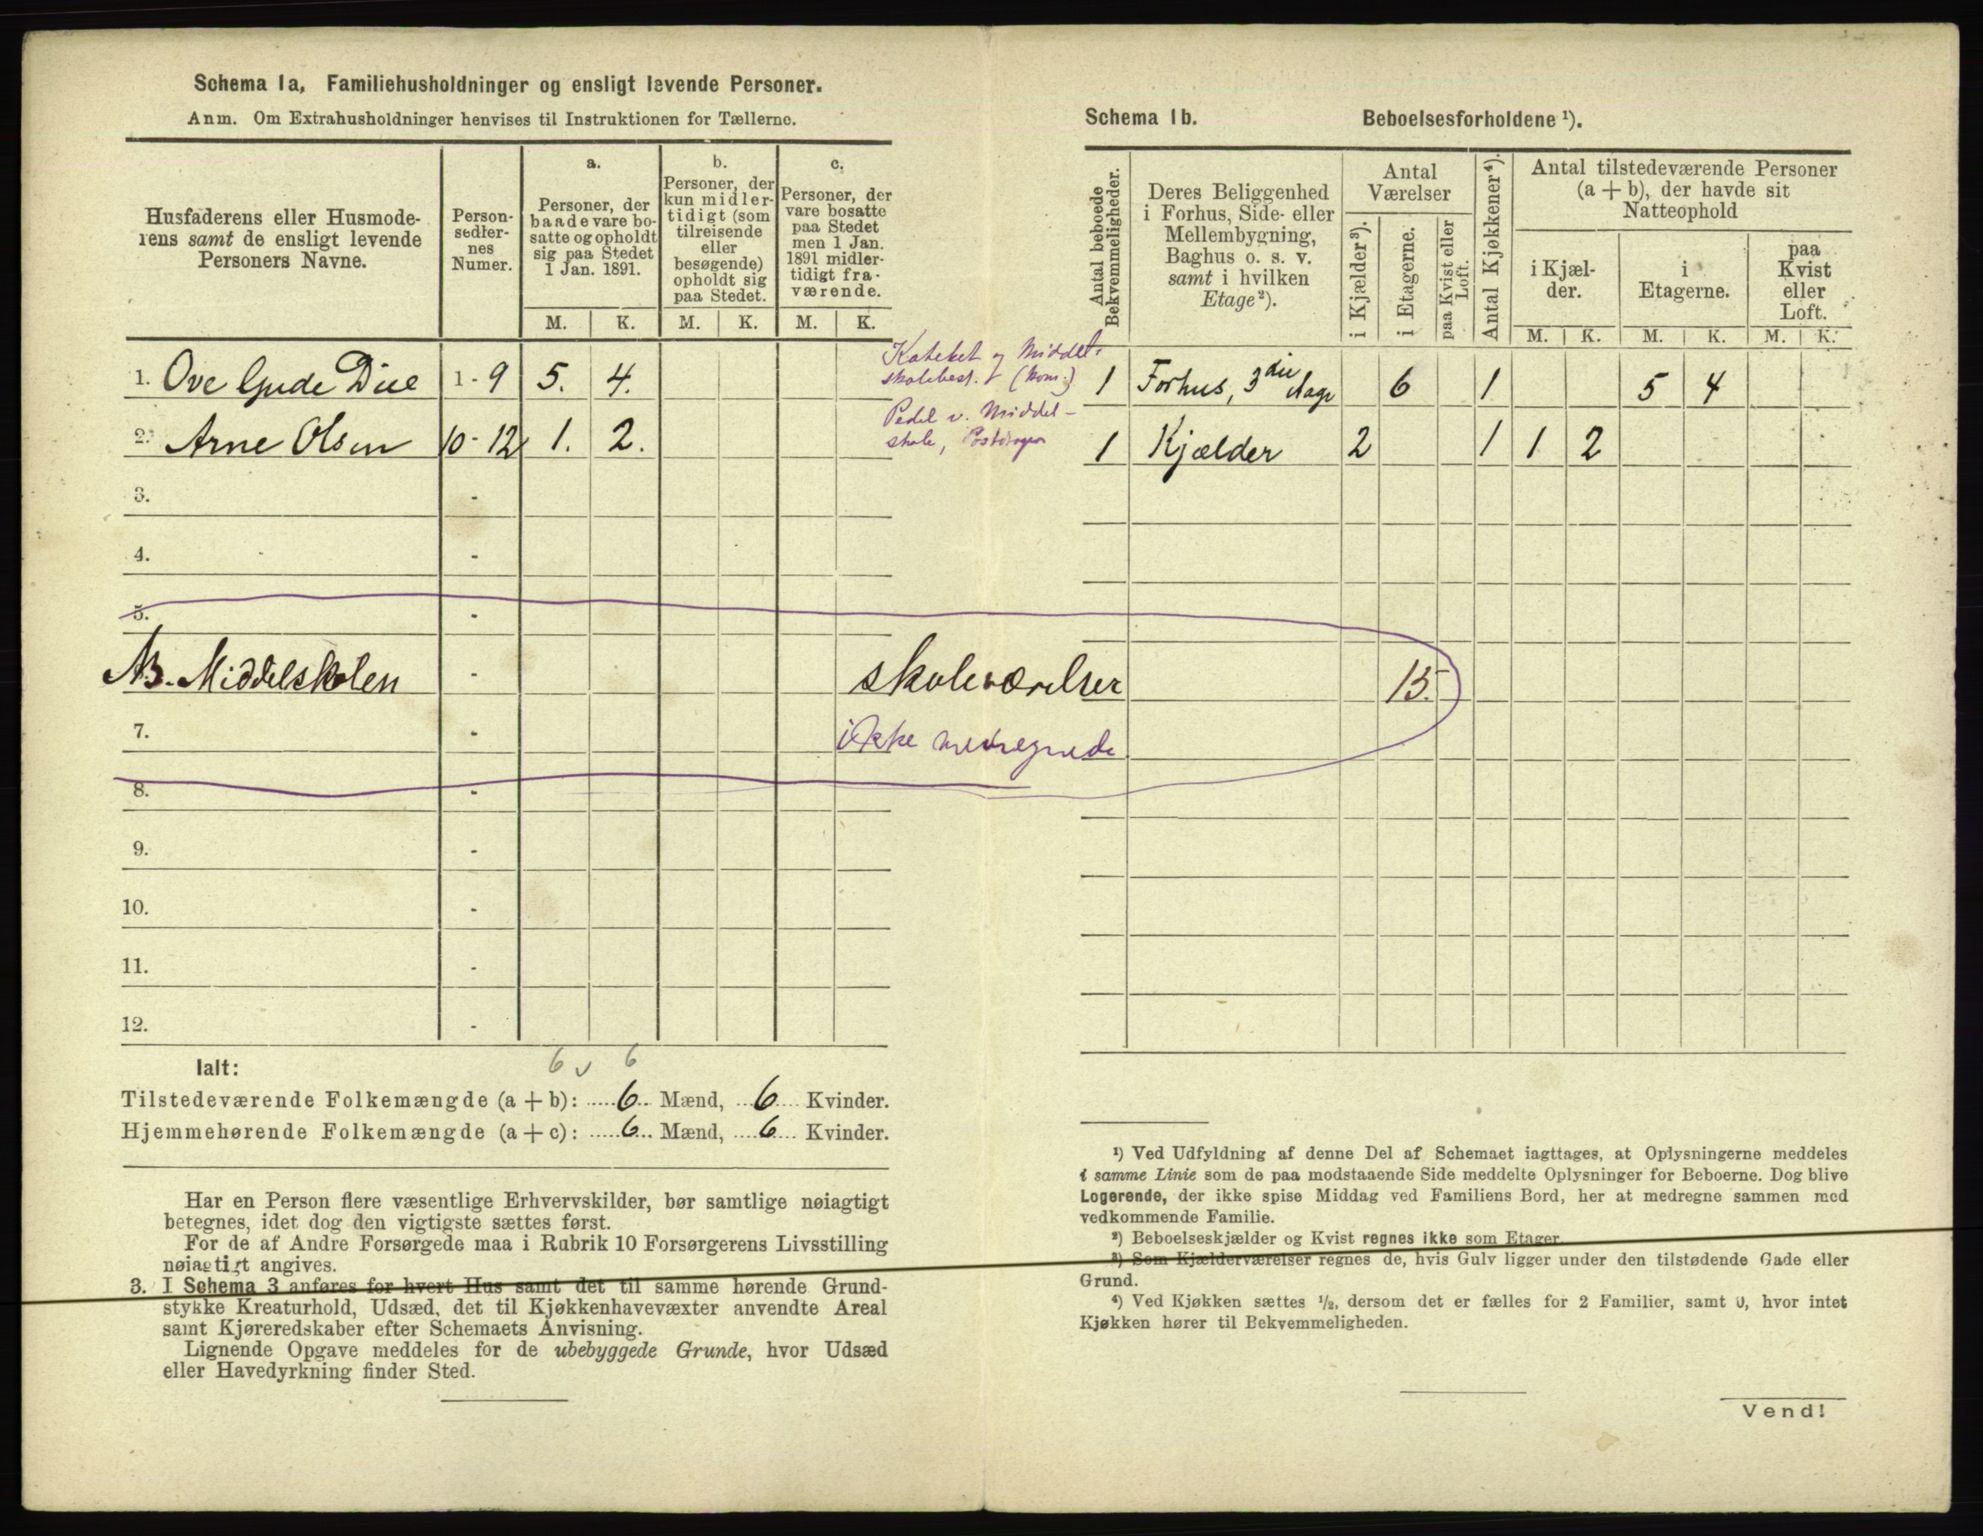 Schema 1a, Familiehusholdninger og ensligt levende Personer.
Anm. Om Extrahusholdninger henvises til Instruktionen for Tællerne.
Husfaderens eller Husmode-
rens samt de ensligt levende
Personers Navne.
Person-
sedler-
nes
Numer.
a.
Personer, der
baade vare bo-
satte og opholdt
sig paa Stedet
1 Jan. 1891.
b.
Personer, der
kun midler-
tidigt (som
tilreisende
eller
besøgende)
opholdt sig
paa Stedet.
c.
Personer, der
vare bosatte
paa Stedet
men 1 Jan.
1891 midler-
tidigt fra-
værende.
M. K. M. K. M. K.
1. Ove Gude Due 1 - 9 5. 4. Kateket og Middel-
skolebest. (kom.)
2. Arne Olsen 10 - 12 1. 2. Pedel v. Middel-
skole,
3. -
4. -
5. -
NB. Middelskolen - skoleværelser 15.
7. - ikke medregnede
8. -
9. -
10. -
11. -
12. -
6 v 6
Ialt:
Tilstedeværende Folkemængde (a + b): 6 Mænd, 6 Kvinder.
Hjemmehørende Folkemængde (a + c): 6 Mænd, 6 Kvinder.
Har en Person flere væsentlige Erhvervskilder, bør samtlige nøiagtigt
betegnes, idet dog den vigtigste sættes først.
For de af Andre Forsørgede maa i Rubrik 10 Forsørgerens Livsstilling
nøiagtigt angives.
3. I Schema 3 anføres for hvert Hus samt det til samme hørende Grund-
stykke Kreaturhold, Udsæd, det til Kjøkkenhavevæxter anvendte Areal
samt Kjøreredskaber efter Schemaets Anvisning.
Lignende Opgave meddeles for de ubebyggede Grunde, hvor Udsæd
eller Havedyrkning finder Sted.
Schema 1b. Beboelsesforholdene ¹).
Antal beboede
Bekvemmeligheder.
Deres Beliggenhed
i Forhus, Side- eller
Mellembygning,
Baghus o. s. v.
samt i hvilken
Etage ²).
Antal
Værelser
i Kjælder ³).
i Etagerne.
paa Kvist eller
Loft.
Antal Kjøkkener ⁴).
Antal tilstedeværende Personer
(a + b), der havde sit
Natteophold
i Kjæl-
der.
i
Etagerne.
paa
Kvist
eller
Loft.
M. K. M. K. M. K.
1 Forhus, 3die Etage 6 1 5 4
1 Kjælder 2 1 1 2
¹) Ved Udfyldning af denne Del af Schemaet iagttages, at Oplysningerne meddeles
i samme Linie som de paa modstaaende Side meddelte Oplysninger for Beboerne. Dog blive
Logerende, der ikke spise Middag ved Familiens Bord, her at medregne sammen med
vedkommende Familie.
²) Beboelseskjælder og Kvist regnes ikke som Etager.
³) Som Kjælderværelser regnes de, hvis Gulv ligger under den tilstødende Gade eller
Grund.
⁴) Ved Kjøkken sættes ½, dersom det er fælles for 2 Familier, samt 0, hvor intet
Kjøkken hører til Bekvemmeligheden.
Vend!